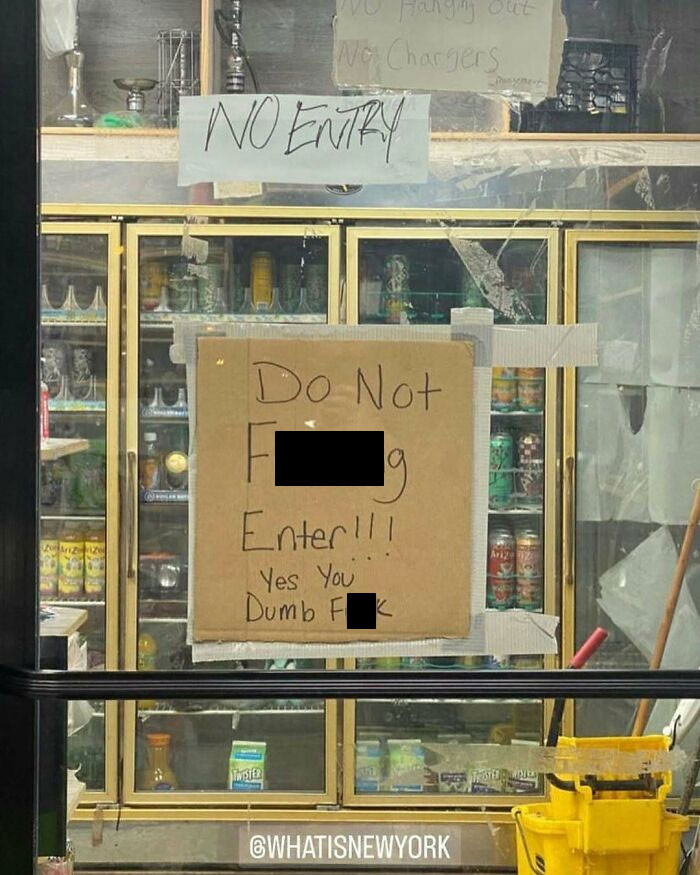 No Hanging out
No Chargers
NO ENTRY
Do Not
F g
Enter!!!
Yes You
Dumb F K
AriZo
TWISTER
TWISTER
@WHATISNEWYORK